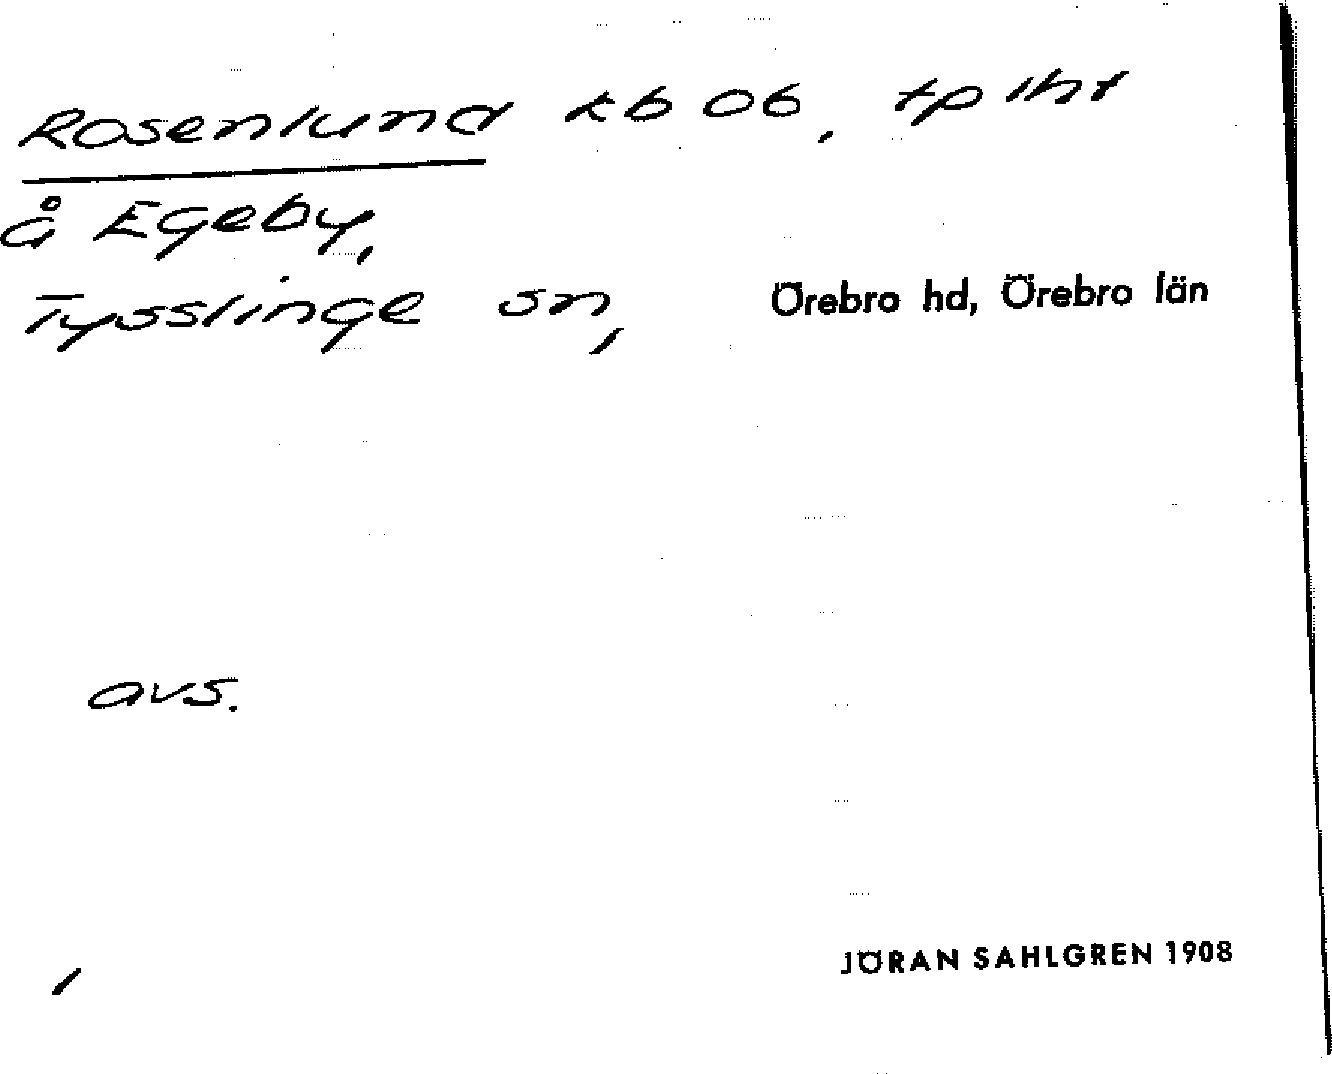 Rosenlund kb 06, tp lht
å Egeby,
Tysslinge sn, Örebro hd, Örebro län
avs.
JÖRAN SAHLGREN 1908